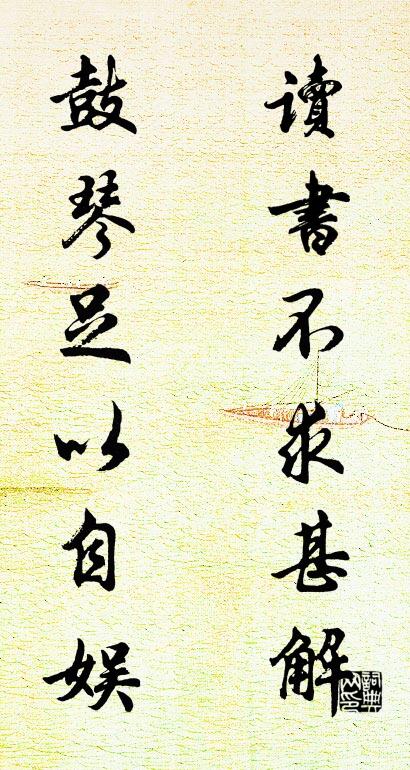 讀書不求甚解
鼓琴足以自娛